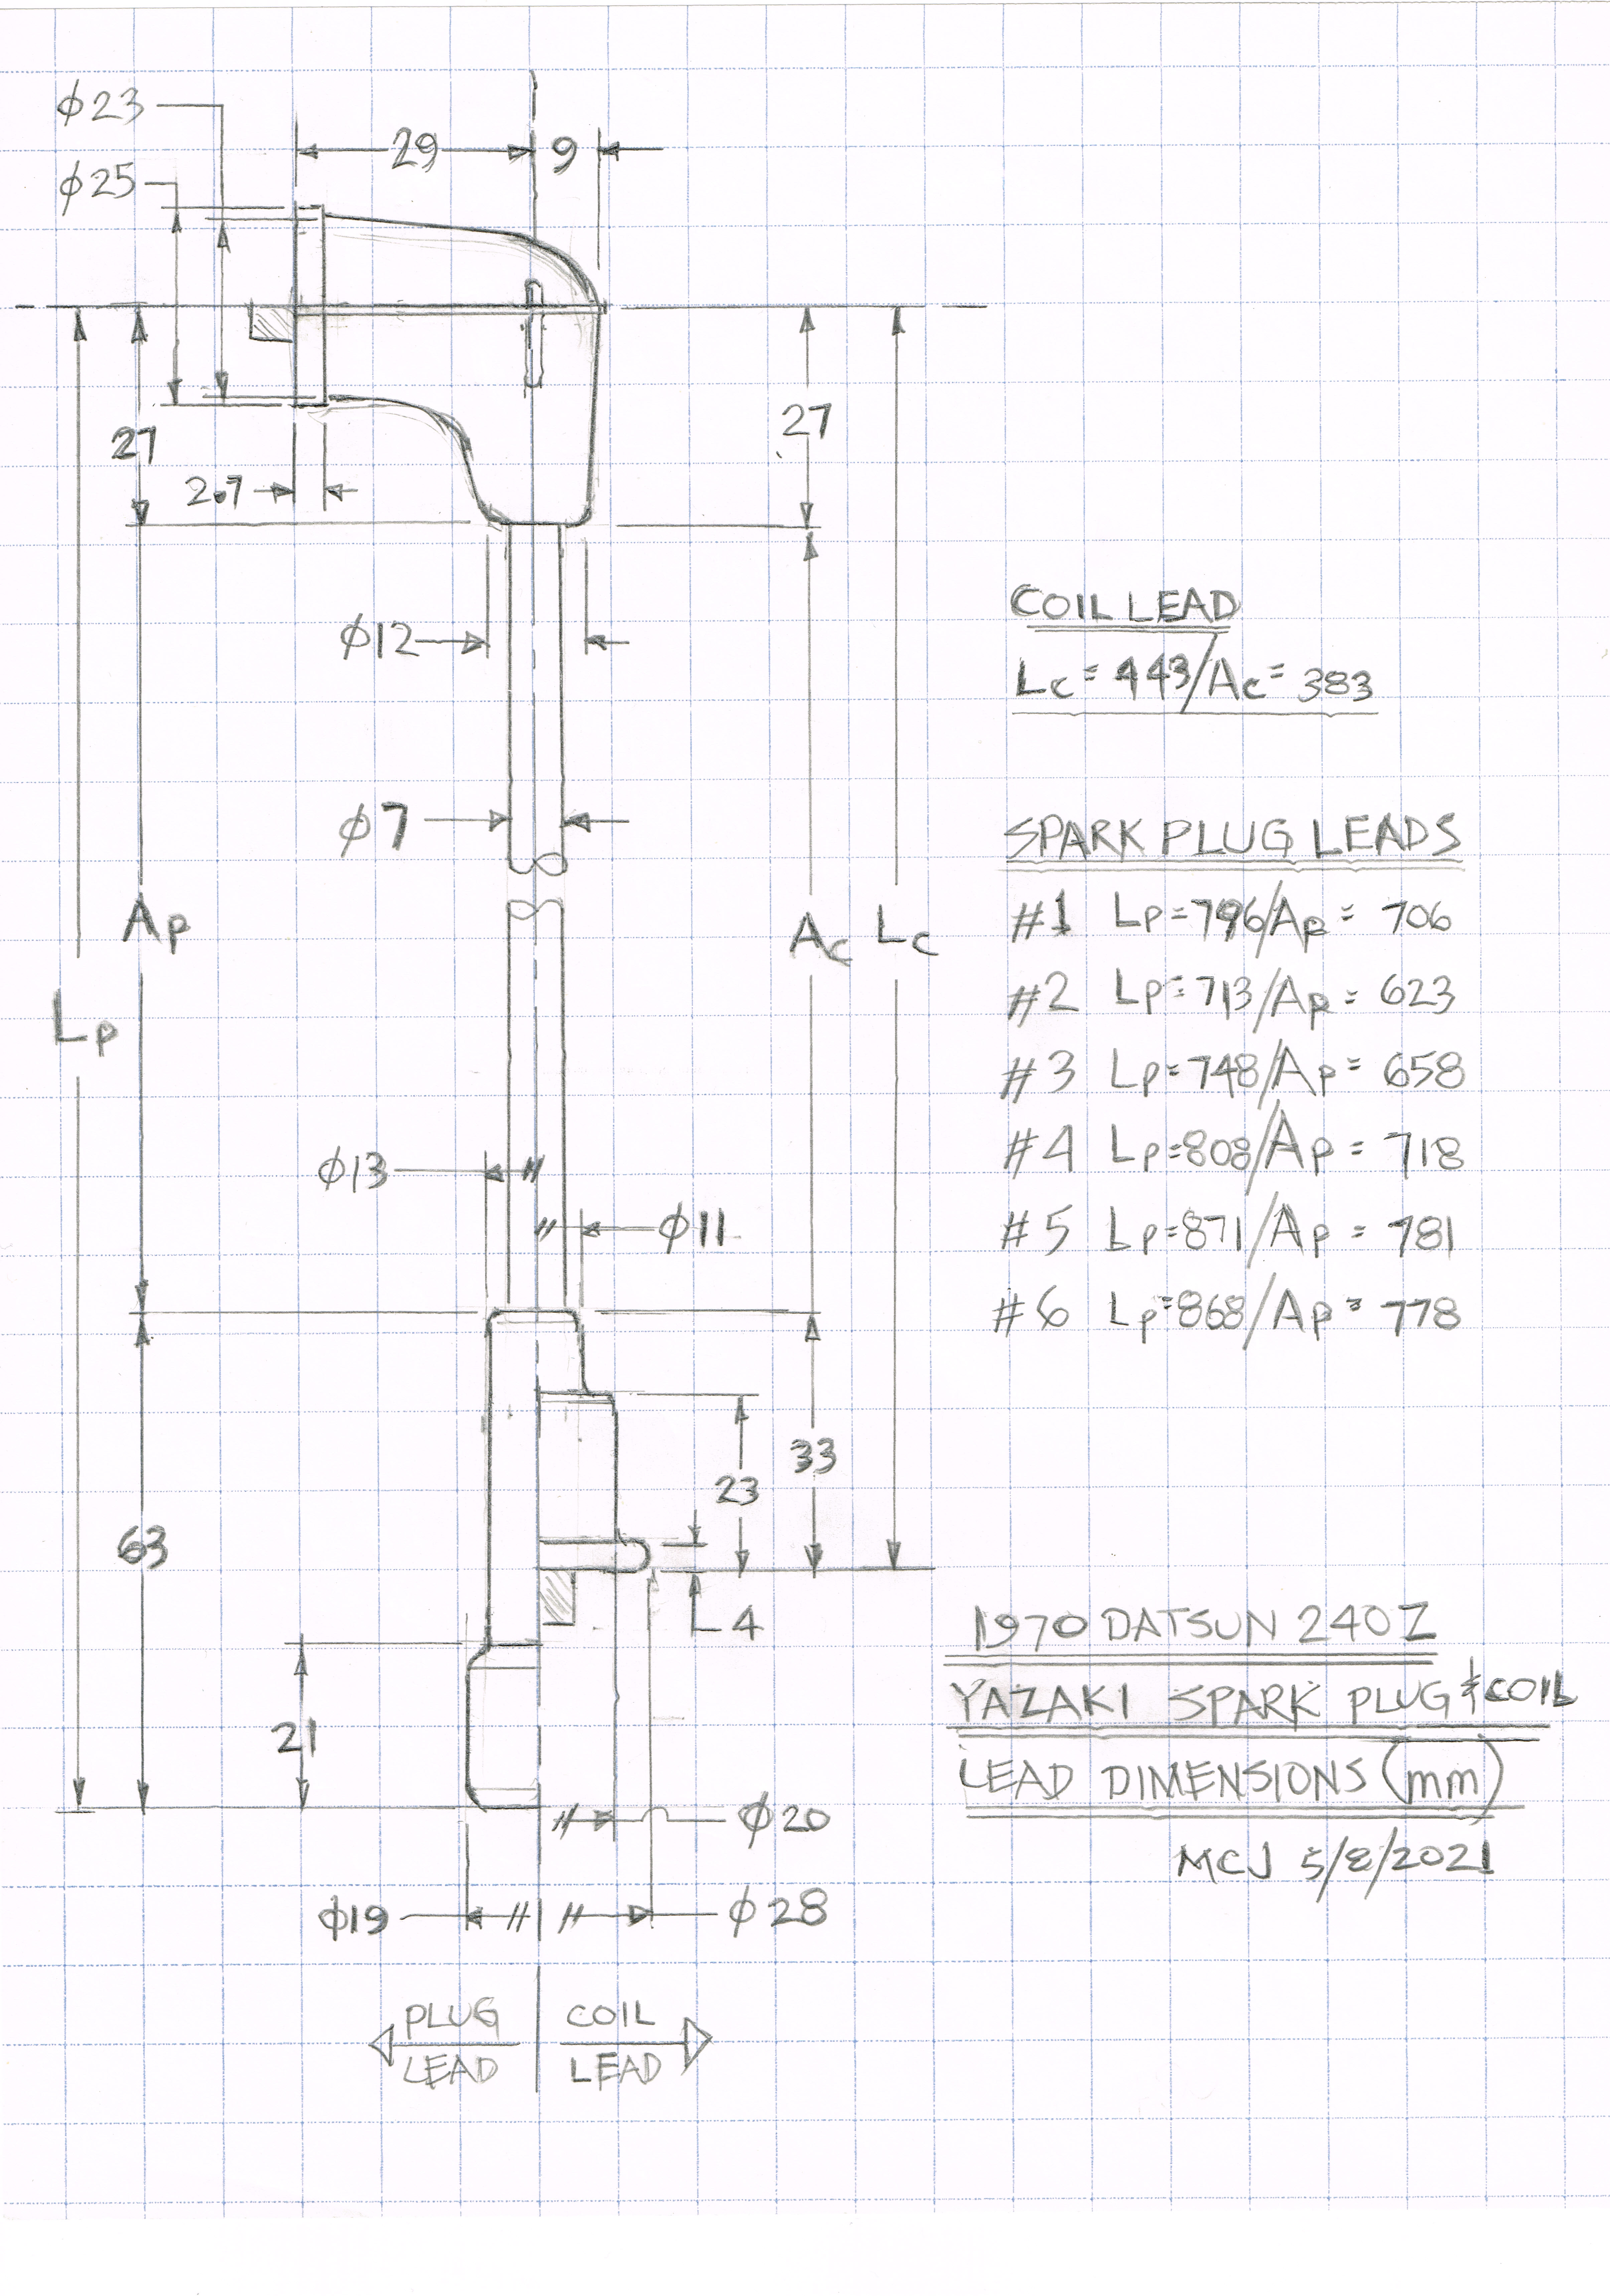 φ23
29
9
φ25
27
27
2.7
φ12
COIL LEAD
Lc = 443/Ac = 383
φ7
SPARK PLUG LEADS
#1 Lp=796/Ap= 706
#2 Lp=713/Ap= 623
#3 Lp=748/Ap= 658
#4 Lp=808/Ap= 718
#5 Lp=871/Ap= 781
#6 Lp=868/Ap= 778
Ap
Ac
Lc
Lp
φ13
φ11
33
23
63
4
21
1970 DATSUN 240Z
YAZAKI SPARK PLUG & COIL
LEAD DIMENSIONS (mm)
MCJ 5/8/2021
φ20
φ19
φ28
PLUG
LEAD
COIL
LEAD